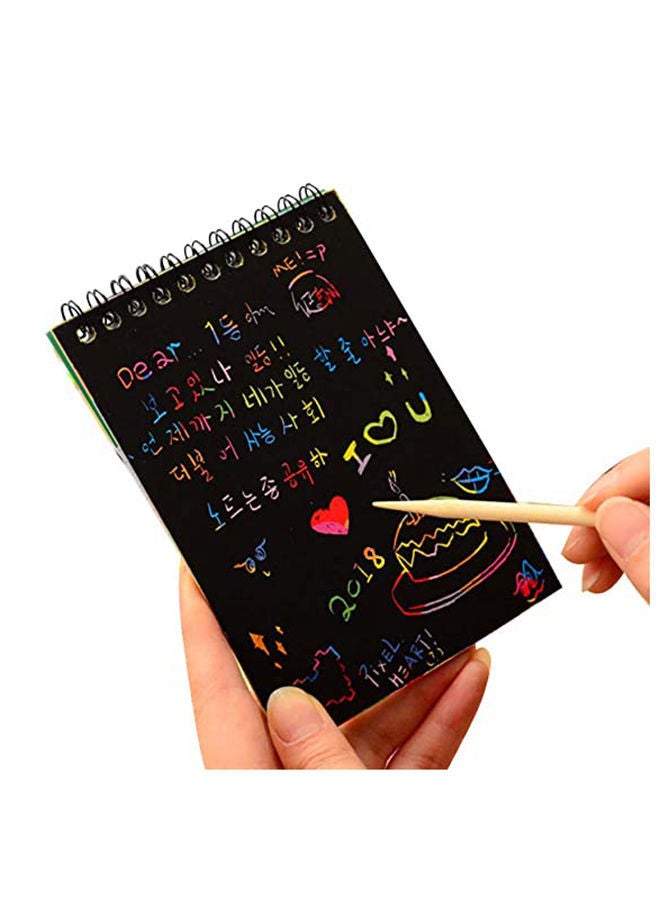 ME! =P
Dear... 1등
보고있나 일등!!
언제까지 네가 일등 할 줄 아냐~
더불어 사는 사회
노트는 좀 공유하
I ♡ U
2018
PIXEL
HEART!